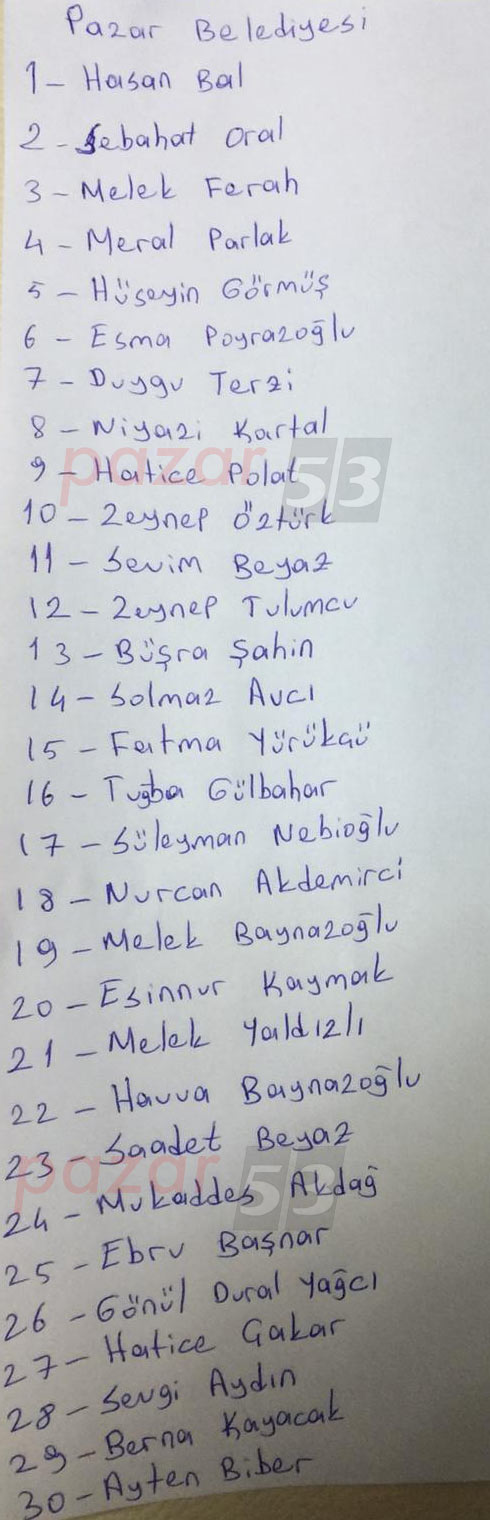 Pazar Belediyesi
1- Hasan Bal
2- Sebahat Oral
3- Melek Ferah
4- Meral Parlak
5- Hüseyin Görmüş
6- Esma Poyrazoğlu
7- Duygu Terzi
8- Niyazi Kartal
9- Hatice Polat
pazar 53
10- Zeynep Öztürk
11- Sevim Beyaz
12- Zeynep Tulumcu
13- Büşra Şahin
14- Solmaz Avcı
15- Fatma
16- Tuğba Gülbahar
17- Süleyman Nebioğlu
18- Nurcan Akdemirci
19- Melek Baynazoğlu
20- Esinnur Kaymak
21- Melek Yaldızlı
22- Havva Baynazoğlu
23- Saadet Beyaz
pazar 53
24- Mukaddes Akdağ
25- Ebru Başnar
26- Gönül Dural Yağcı
27- Hatice Gakar
28- Sevgi Aydın
29- Berna Kayacak
30- Ayten Biber